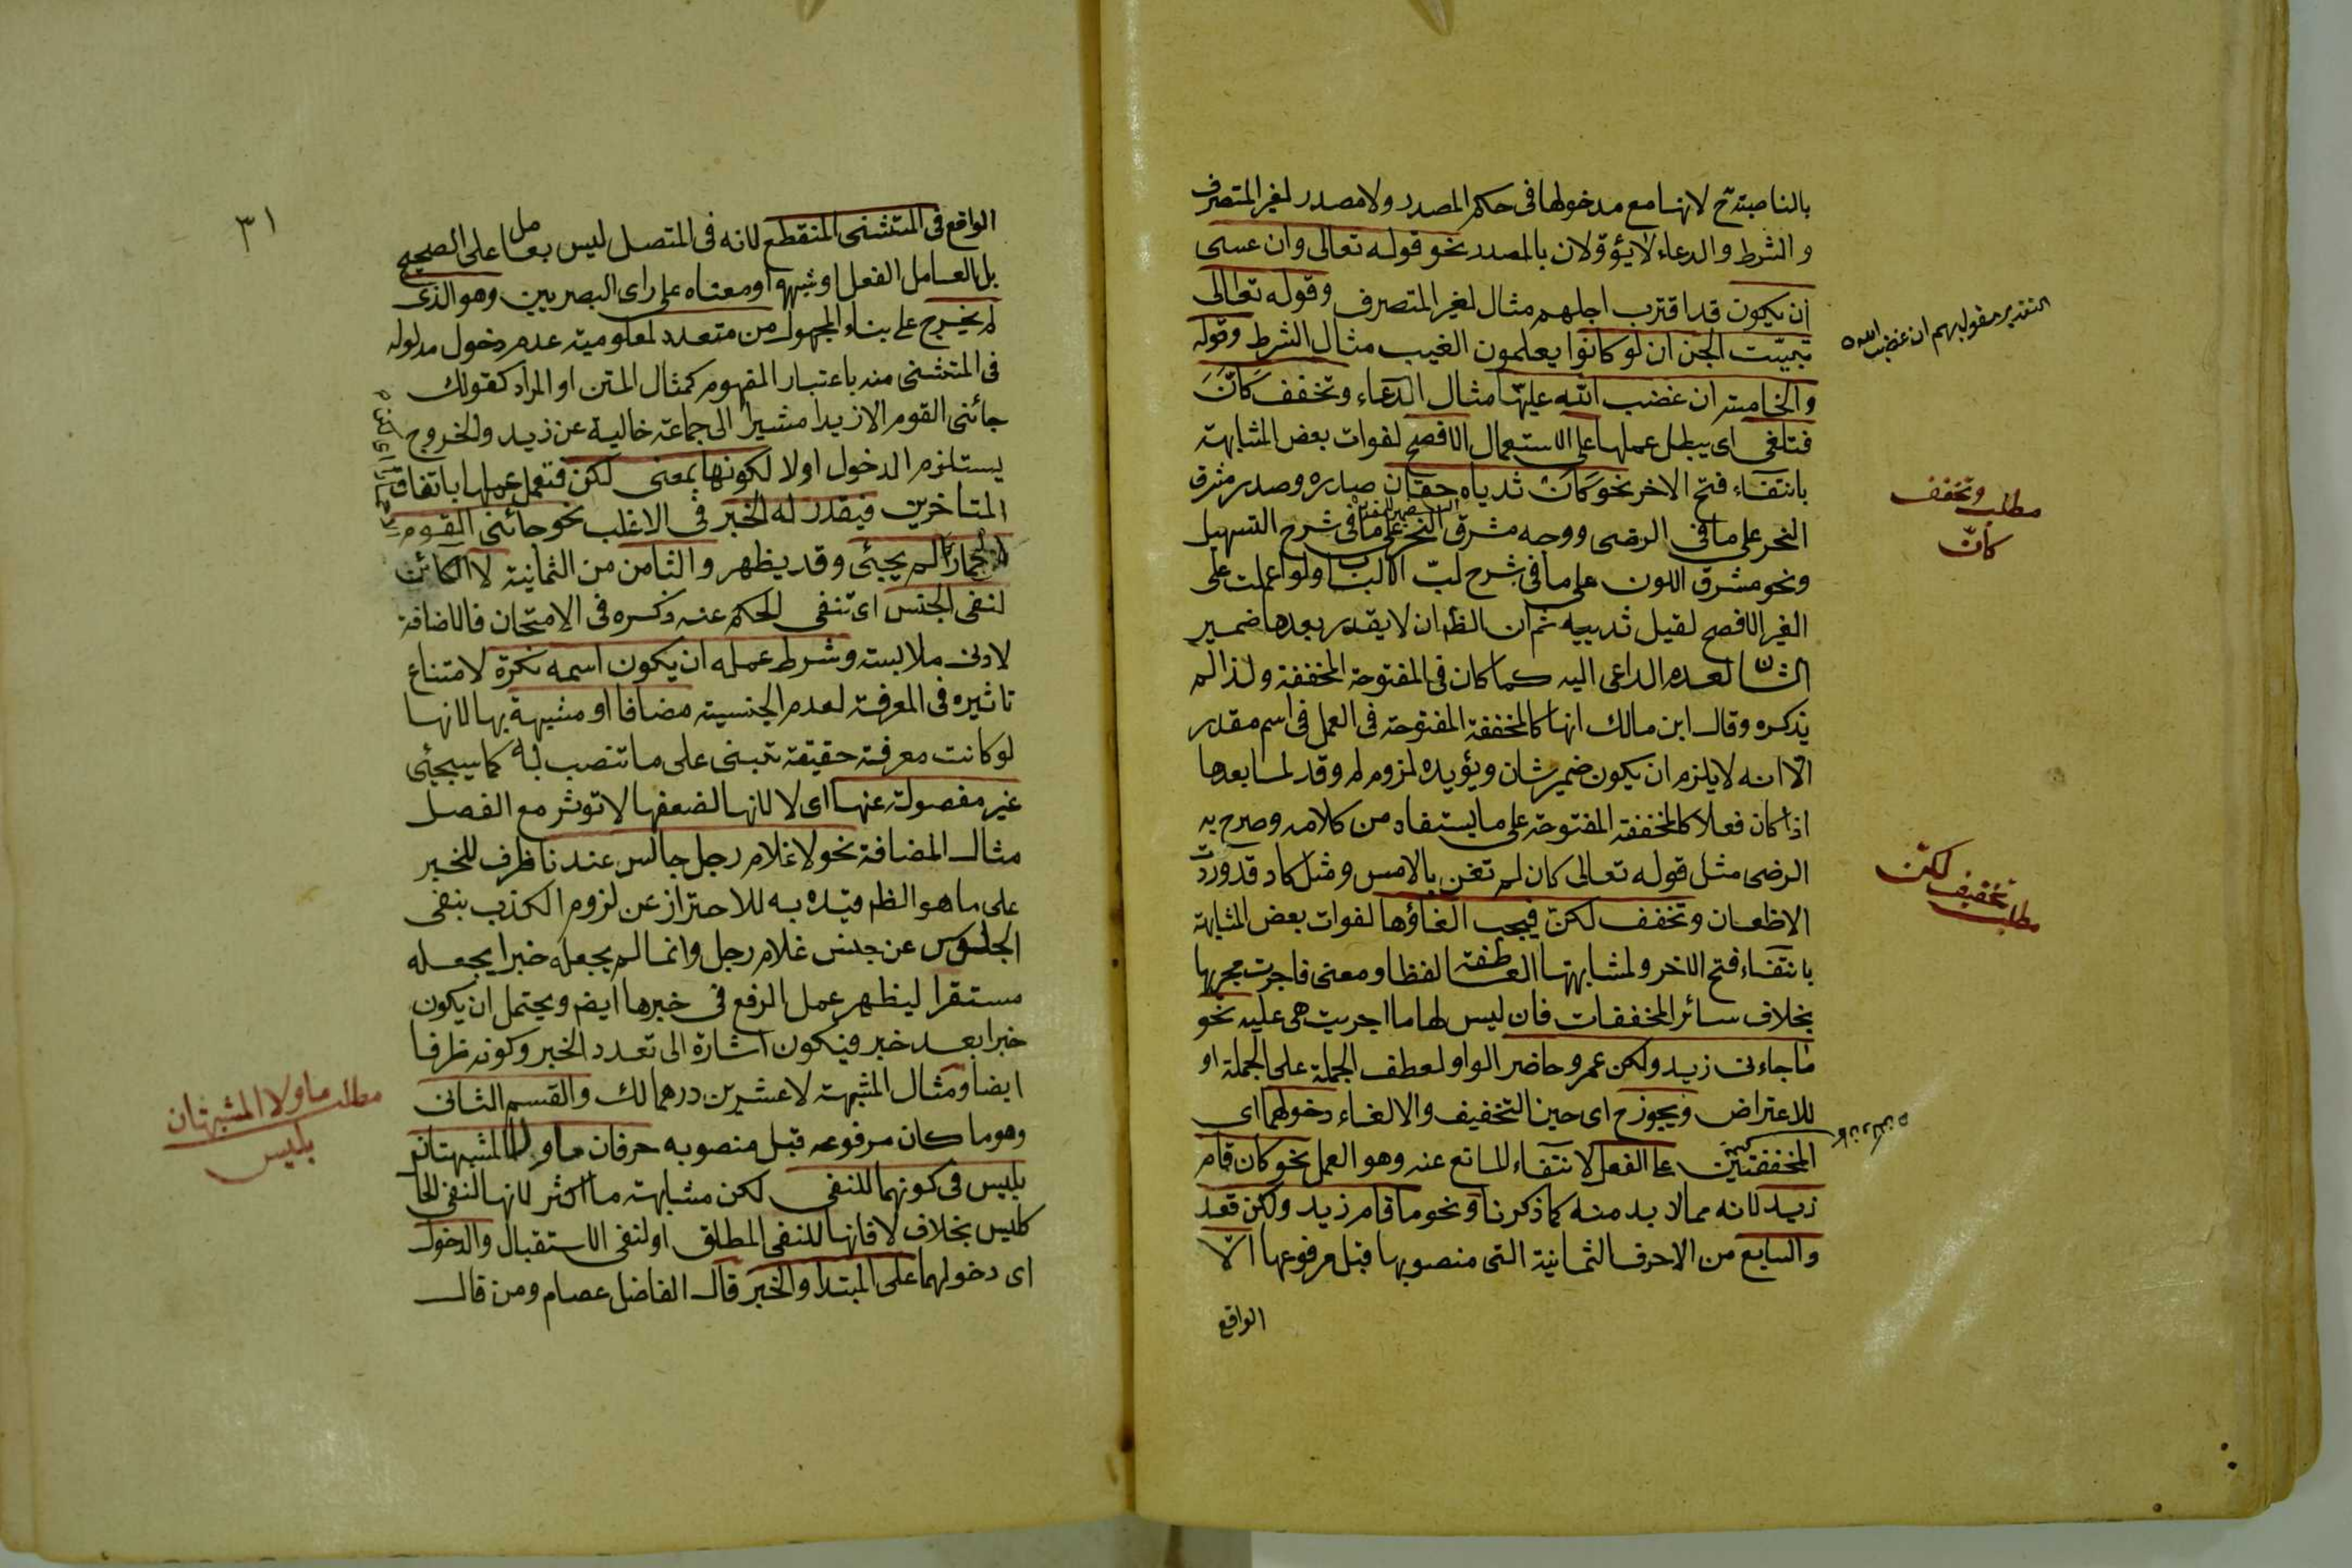 بالناصبة ح لانها مع مدخولها فى حكم المصدر ولا مصدر لغير المتصرف
والشرط والدعاء لا يؤولان بالمصدر نحو قوله تعالى وان عسى
ان يكون قد اقترب اجلهم مثال لغير المتصرف وقوله تعالى
تبينت الجن ان لو كانوا يعلمون الغيب مثال الشرط وقوله
والخامسة ان غضب الله عليها مثال الدعاء وتخفف كانّ
فتلغى اى يبطل عملها على الاستعمال الافصح لفوات بعض المشابهة
بانتفاء فتح الاخر نحو كان ثدياه حقان صدره وصدر مشرق
النحر على ما فى الرضى ووجه مشرق النحر على ما فى شرح التسهيل
ونحو مشرق اللون على ما فى شرح لب الالباب ولو اعملت على
الغير الافصح لقيل ثدييه ثم ان الظ ان لا يقدر بعدها ضمير
الشان لعدم الداعى اليه كما كان فى المفتوحة المخففة ولذا لم
يذكره وقال ابن مالك انها كالمخففة المفتوحة فى العمل فى اسم مقدر
الا انه لا يلزم ان يكون ضمير شان ويؤيده لزوم لم وقد لما بعدها
اذا كان فعلا كالمخففة المفتوحة على ما يستفاد من كلامه وصرح به
الرضى مثل قوله تعالى كان لم تغن بالامس ومثل كاد قد وردت
الاظعان وتخفف لكنّ فيجب الغاؤها لفوات بعض المشابهة
بانتفاء فتح الاخر ولمشابهتها العاطفة لفظا ومعنى فاجرت مجريها
بخلاف سائر المخففات فان ليس لها ما اجريت هى عليه نحو
ما جاءنى زيد ولكن عمرو حاضر الواو لعطف الجملة على الجملة او
للاعتراض ويجوز ح اى حين التخفيف والالغاء دخولهما اى
المخففتين على الفعل لانتفاء المانع عنه وهو العمل نحو كان قام
زيد لانه مما لا بد منه كما ذكرنا ونحو ما قام زيد ولكن قعد
والسابع من الاحرف الثمانية التى منصوبها قبل مرفوعها الّا
الواقع
التقدير مقول بهم ان غضب الله
مطلب وتخفف
كانّ
مطلب تخفيف لكنّ
٣١
الواقع فى المستثنى المنقطع لانه فى المتصل ليس بعامل على الصحيح
بل العامل الفعل او شبهه او معناه على راى البصريين وهو الذى
لم يخرج على بناء المجهول من متعدد لمعلومية عدم دخول مدلوله
فى المستثنى منه باعتبار المفهوم كمثال المتن او المراد كقولك
جائنى القوم الا زيدا مشيرا الى جماعة خالية عن زيد والخروج
يستلزم الدخول اولا لكونها بمعنى لكن فتعمل عملها باتفاق
المتاخرين فيقدر له الخبر فى الاغلب نحو جائنى القوم
الا حمارا لم يجئ وقد يظهر والثامن من الثمانية لا الكائن
لنفى الجنس اى تنفى الحكم عنه وذكره فى الامتحان فالاضافة
لادنى ملابسة وشرط عمله ان يكون اسمه نكرة لامتناع
تاثيره فى المعرفة لعدم الجنسية مضافا او مشبهة بها لانها
لو كانت معرفة حقيقة تبنى على ما تنصب به كما سيجئ
غير مفصولة عنها اى لا لانها لضعفها لا تؤثر مع الفصل
مثال المضافة نحو لا غلام رجل جالس عندنا ظرف للخبر
على ما هو الظ قيده به للاحتراز عن لزوم الكذب بنفى
الجلوس عن جنس غلام رجل وانما لم يجعله خبرا يجعله
مستقرا ليظهر عمل الرفع فى خبرها ايض ويحتمل ان يكون
خبرا بعد خبر فيكون اشارة الى تعدد الخبر وكونه ظرفا
ايضا ومثال المشبهة لا عشرين درهما لك والقسم الثانى
وهو ما كان مرفوعه قبل منصوبه حرفان ما ولا المشبهتان
بليس فى كونهما للنفى لكن مشابهة ما اكثر لانها لنفى الحال
كليس بخلاف لا فانها للنفى المطلق او لنفى الاستقبال والدخول
اى دخولهما على المبتدا والخبر قال الفاضل عصام ومن قال
مطلب ما ولا المشبهتان
بليس